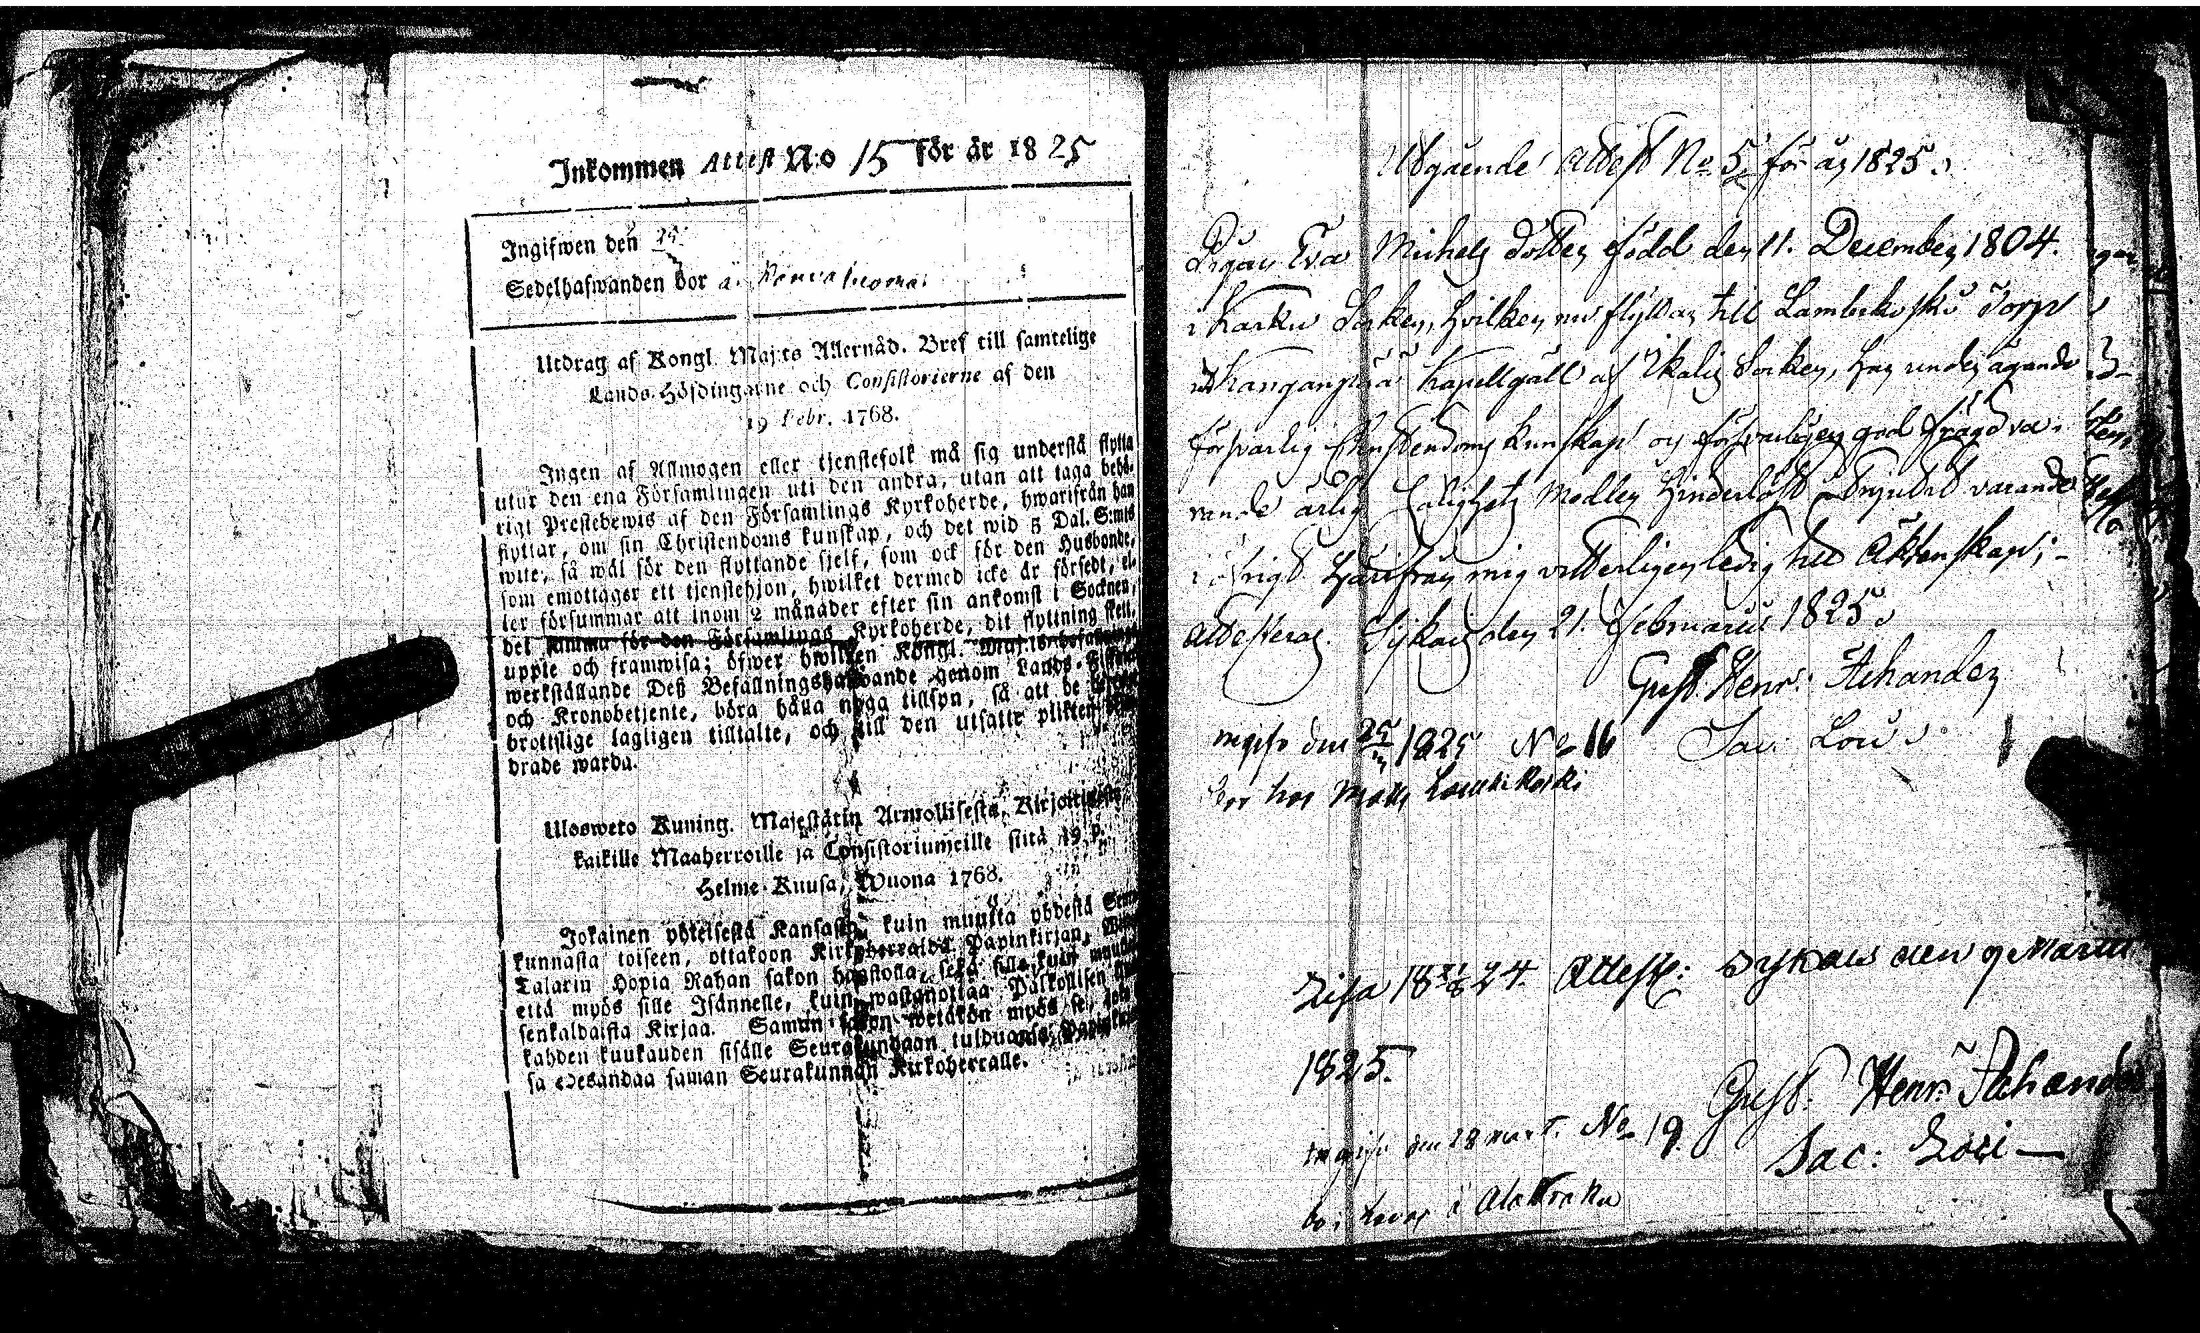 Inkommen Attest N:o 15 för år 1825
Ingifwen den 25
Sedelhafwanden bor å
Utdrag af Kongl. Maj:ts Allernåd. Bref till samtelige
Lands-Höfdingarne och Consistorierne af den
19 Febr. 1768.
Ingen af Allmogen eller tjenstefolk må sig understå flytta
utur den ena Församlingen uti den andra, utan att taga behö-
rigt Prestebewis af den Församlings Kyrkoherde, hwarifrån han
flyttar, om sin Christendoms kunskap, och det wid 5 Dal. S:mts
wite, så wäl för den flyttande sjelf, som ock för den Husbonde,
som emottager ett tjenstehjon, hwilket dermed icke är försedt, el-
ler försummar att inom 2 månader efter sin ankomst i Socknen,
det samma för den Församlings Kyrkoherde, dit flyttning skett,
uppte och framwisa; öfwer hwilken Kongl. Maj:ts befallnings
werkställande Deß Befallningshafwande genom Lands-Fiskaler
och Kronobetjente, böra hålla noga tillsyn, så att de
brottslige lagligen tilltalte, och till den utsatte plikten
drade warda.
Ulosweto Kuning. Majestätin Armollisesta Kirjoituxesta
kaikille Maaherroille ja Consistoriumeille siitä 19 p.
Helme-Kuusa, Wuona 1768.
Jokainen yhteisestä Kansasta, kuin muutta yhdestä Seura-
kunnasta toiseen, ottakoon Kirkoherralda Papinkirjan,
Talarin Hopia Rahan sakon haastolla, sekä sille kuin muutta
että myös sille Isännelle, kuin wastanottaa Palkollisen
senkaldaista Kirjaa. Saman sakon wetäkön myös se, joka
kahden kuukauden sisälle Seurakundaan tulduansa, Papinkirjan-
sa edesandaa saman Seurakunnan Kirkoherralle.
Utgående Attest No 5 för år 1825.
Pigan Eva Michels dotter född den 11. December 1804.
i Karku Socken, hvilken nu flyttar till Lambikoski Torp
Kapellgäll af Ikalis Socken, har under ägande
försvarlig Christendoms kunskap og försvarligen god frägd va-
rande årlig Salighets Medlen hinderlöst varande
i öfrigt härifrån mig vitterligen ledig till Äktenskap;-
attesteras. Sykais den 21. Februarii 1825.
Gust. Henr: Achander
ingifv den 25 1825 No 16 Jac: Lovi
bor hos Matts Lambikoski
Lisa 18 24. Attest: Sykais den 9 Martii
1825.
Gust: Henr: Achander
ingifv den 28 mart. No 19.
Jac: Lovi